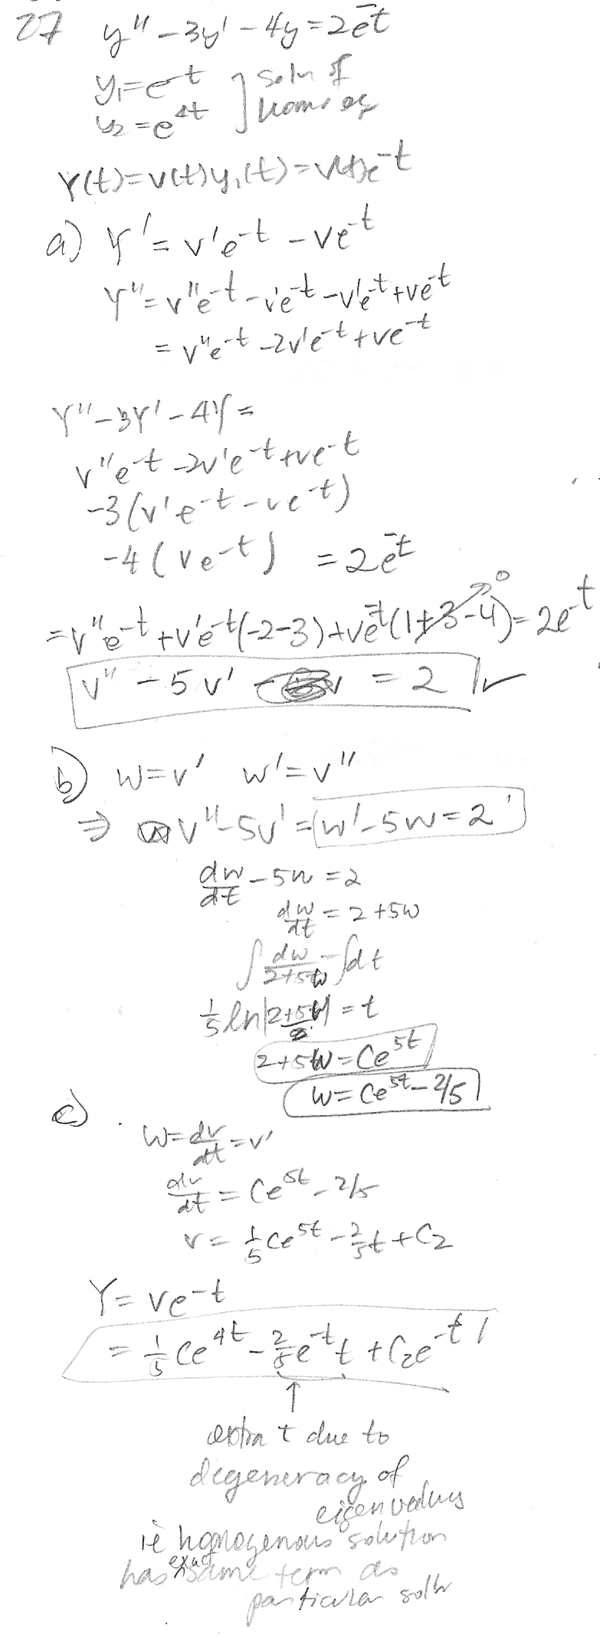 27 y'' - 3y' - 4y = 2e^-t
y₁ = e^-t ] soln of
y₂ = e^4t ] homo eq
Y(t) = v(t)y₁(t) = v(t)e^-t
a) Y' = v'e^-t - ve^-t
Y'' = v''e^-t - v'e^-t - v'e^-t + ve^-t
= v''e^-t - 2v'e^-t + ve^-t
Y'' - 3Y' - 4Y =
v''e^-t - 2v'e^-t + ve^-t
-3(v'e^-t - ve^-t)
-4(ve^-t) = 2e^-t
= v''e^-t + v'e^-t(-2-3) + ve^-t(1+3-4)→0 = 2e^-t
v'' - 5v' = 2 ✓
b) w = v' w' = v''
⇒ v'' - 5v' = w' - 5w = 2
dw/dt - 5w = 2
dw/dt = 2 + 5w
∫ dw/(2+5w) = ∫dt
1/5 ln|2+5w| = t
2+5w = Ce^5t
w = Ce^5t - 2/5
c)
w = dv/dt = v'
dv/dt = Ce^5t - 2/5
v = 1/5 Ce^5t - 2/5 t + C₂
Y = ve^-t
= 1/5 Ce^4t - 2/5 e^-t t + C₂e^-t
↑
extra t due to
degeneracy of
eigenvalues
ie homogenous solution
has exact same term as
particular soln